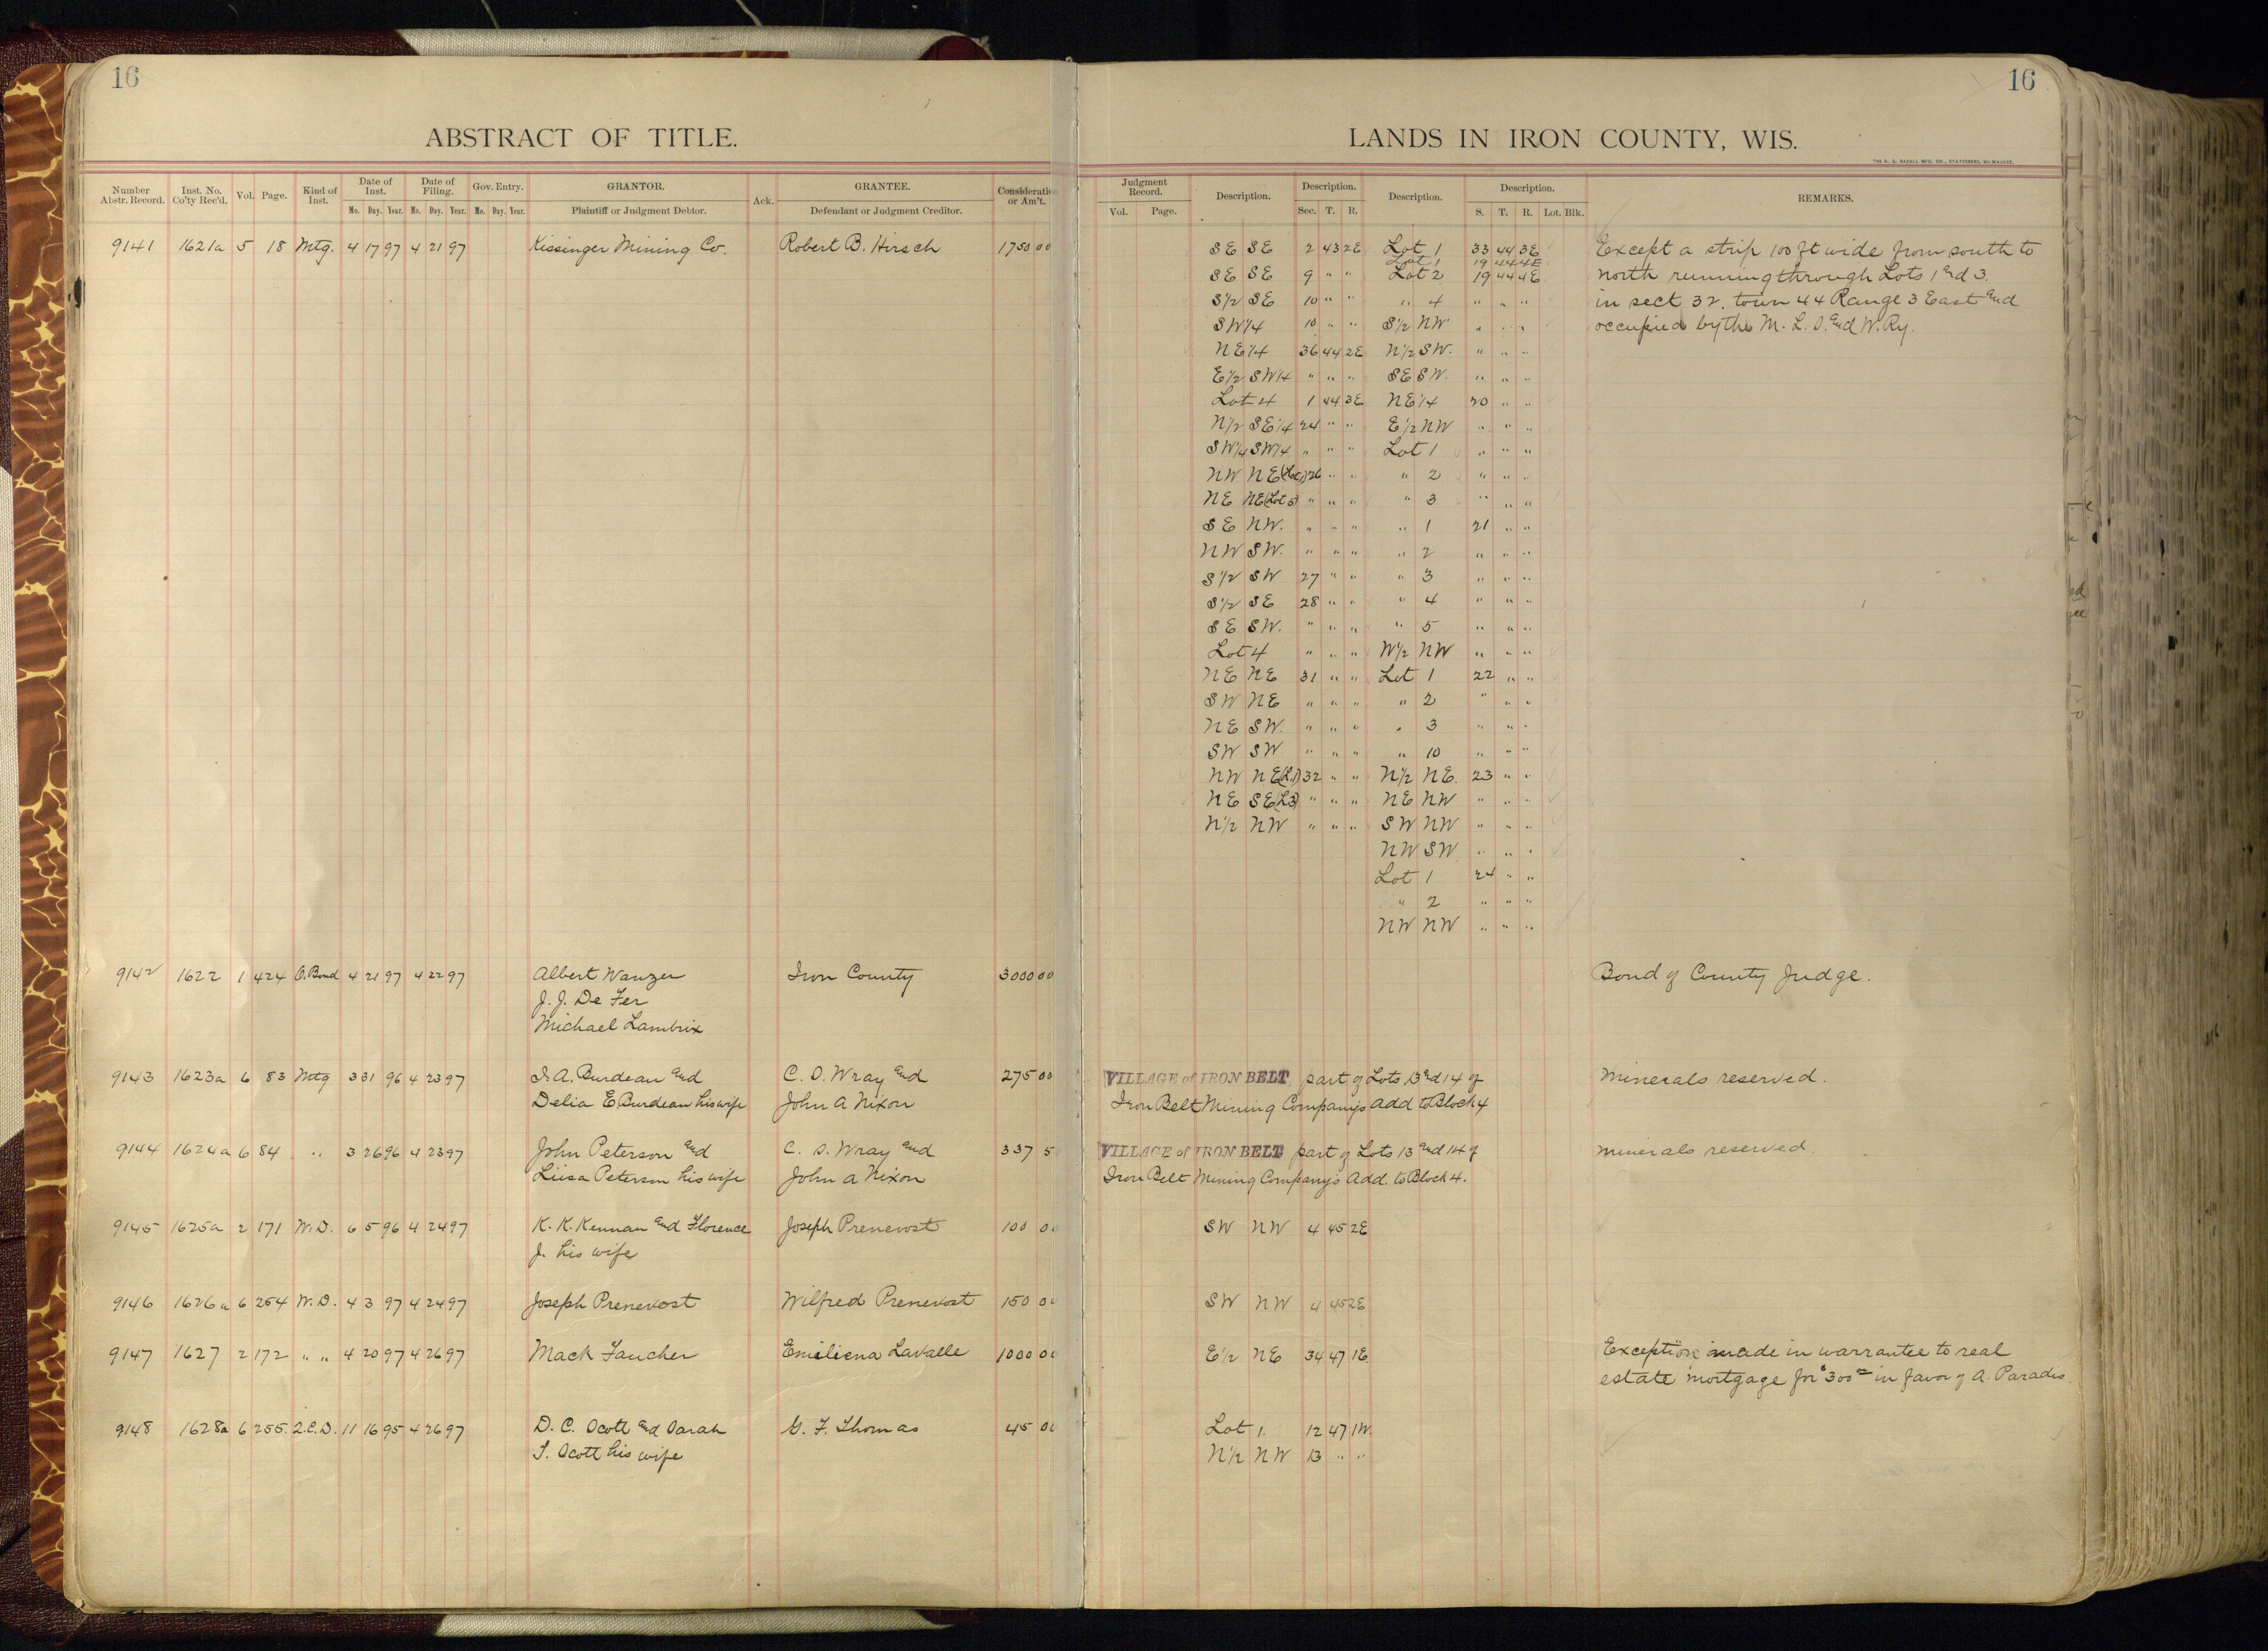 16
16
ABSTRACT OF TITLE.
LANDS IN IRON COUNTY, WIS.
THE H. G. RAZALL MFG. CO., STATIONERS, MILWAUKEE.
Number Abstr. Record. Inst. No. Co'ty Rec'd. Vol. Page. Kind of Inst. Date of Inst. Mo. Day. Year. Date of Filing. Mo. Day. Year. Gov. Entry. Mo. Day. Year. GRANTOR. Plaintiff or Judgment Debtor. Ack. GRANTEE. Defendant or Judgment Creditor. Consideration or Am't.
Judgment Record. Vol. Page. Description. Description. Sec. T. R. Description. Description. S. T. R. Lot. Blk. REMARKS.
9141 1621a 5 18 Mtg. 4 17 97 4 21 97 Kissinger Mining Co. Robert B. Hirsch 1750 00
SE SE 2 43 2E Lot 1 33 44 3E Except a strip 100 ft wide from south to
Lot 1 19 44 4E
SE SE 9 " " Lot 2 19 44 4E north running through Lots 1 and 3.
S1/2 SE 10 " " " 4 " " " in sect 32. town 44 Range 3 East and
SW1/4 10 " " S1/2 NW " " " occupied by the M. L. S. and W. Ry.
NE1/4 36 44 2E N1/2 SW. " " "
E1/2 SW1/4 " " " SE SW. " " "
Lot 4 1 44 3E NE1/4 20 " "
N1/2 SE1/4 24 " " E1/2 NW " " "
SW1/4 SW1/4 " " " Lot 1 " " "
NW NE (Lot 1) 26 " " " 2 " " "
NE NE (Lot 5) " " " " 3 " " "
SE NW. " " " " 1 21 " "
NW SW. " " " " 2 " " "
S1/2 SW 27 " " " 3 " " "
S1/2 SE 28 " " " 4 " " "
SE SW. " " " " 5 " " "
Lot 4 " " " W1/2 NW " " "
NE NE 31 " " Lot 1 22 " "
SW NE " " " " 2 " " "
NE SW. " " " " 3 " " "
SW SW " " " " 10 " " "
NW NE (L.1) 32 " " N1/2 NE. 23 " "
NE SE (L3) " " " NE NW " " "
N1/2 NW " " " SW NW " " "
NW SW " " "
Lot 1 24 " "
" 2 " " "
NW NW " " "
9142 1622 1 424 O. Bond 4 21 97 4 22 97 Albert Wanzer Iron County 3000 00 Bond of County Judge.
J. J. De Fer
Michael Lambrix
9143 1623a 6 83 Mtg 3 31 96 4 23 97 I. A. Burdeau and C. D. Wray and 275 00 VILLAGE of IRON BELT part of Lots 13 and 14 of Minerals reserved.
Delia E Burdeau his wife John A Nixon Iron Belt Mining Companys Add to Block 4
9144 1624a 6 84 " 3 26 96 4 23 97 John Peterson and C. D. Wray and 337 5 VILLAGE of IRON BELT part of Lots 13 and 14 of Minerals reserved.
Liisa Peterson his wife John A Nixon Iron Belt Mining Company's Add. to Block 4.
9145 1625a 2 171 W.D. 6 5 96 4 24 97 K. K. Kennan and Florence Joseph Prenevost 100 0 SW NW 4 45 2E
J. his wife
9146 1626a 6 254 W.D. 4 3 97 4 24 97 Joseph Prenevost Wilfred Prenevost 150 0 SW NW 4 45 2E
9147 1627 2 172 " " 4 20 97 4 26 97 Mack Faucher Emiliena Lavalle 1000 00 E1/2 NE 34 47 1E Exception made in warrantee to real
estate mortgage for $300 00 in favor of A. Paradis.
9148 1628a 6 255. Q.C.D. 11 16 95 4 26 97 D. C. Scott and Sarah G. F. Thomas 45 00 Lot 1. 12 47 1W.
T. Scott his wife N1/2 NW 13 " "